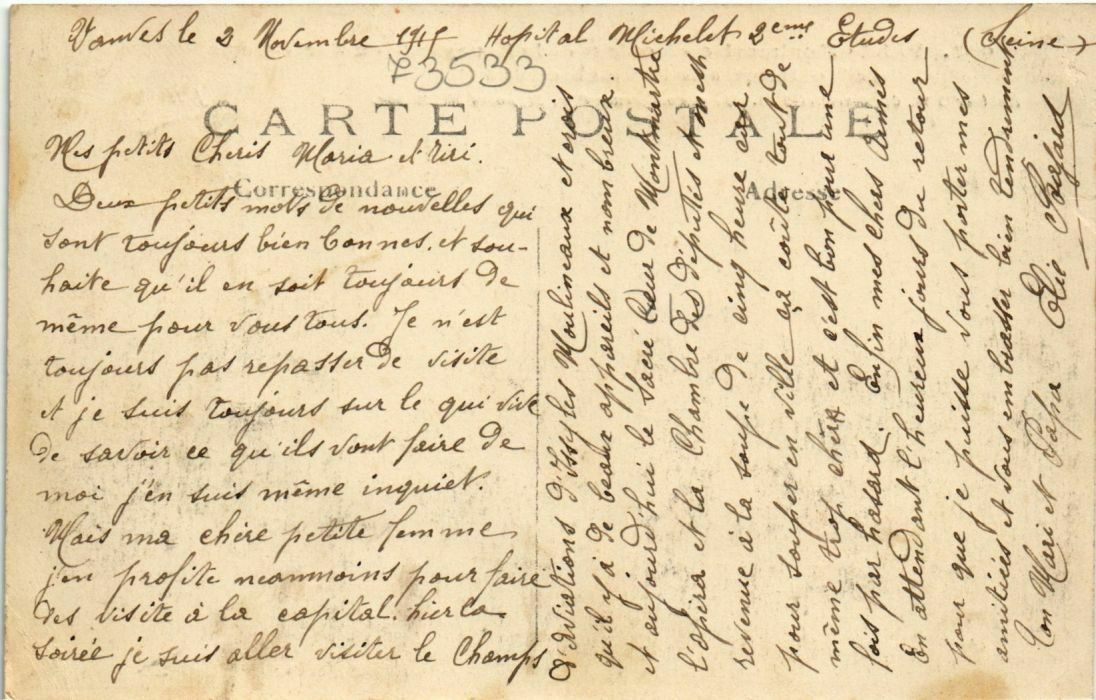 Vanves le 2 Novembre 1915 Hopital Michelet 2eme Etudes (Seine)
73533
CARTE POSTALE
Correspondance
Adresse
Mes petits Cheris Maria et Riri.
Deux petits mots de nouvelles qui
sont toujours bien bonnes. et sou-
haite qu'il en soit toujours de
même pour vous tous. Je n'est
toujours pas repasser de visite
et je suis toujours sur le qui vive
de savoir ce qu'ils vont faire de
moi j'en suis même inquiet.
Mais ma chère petite femme
j'en profite neammoins pour faire
des visite à la capital. hier la
soirée je suis aller visiter le Champs
d'aviations d'Issy les Moulineaux et crois
qu'il y à de beaux appareils et nombreux.
et aujourd'hui le Sacré Cœur de Montmartre
l'opéra et la Chambre des députés et me
revenue à la soupe de cinq heure car
pour souper en ville ça coûte tout de
même trop chère et c'est bon pour une
fois par hasard. Enfin mes chers Aimés
En attendant l'heureux jours du retour
pour que je puisse vous porter mes
amitiées et vous embrasser bien tendrement
Ton Mari et Papa Elie